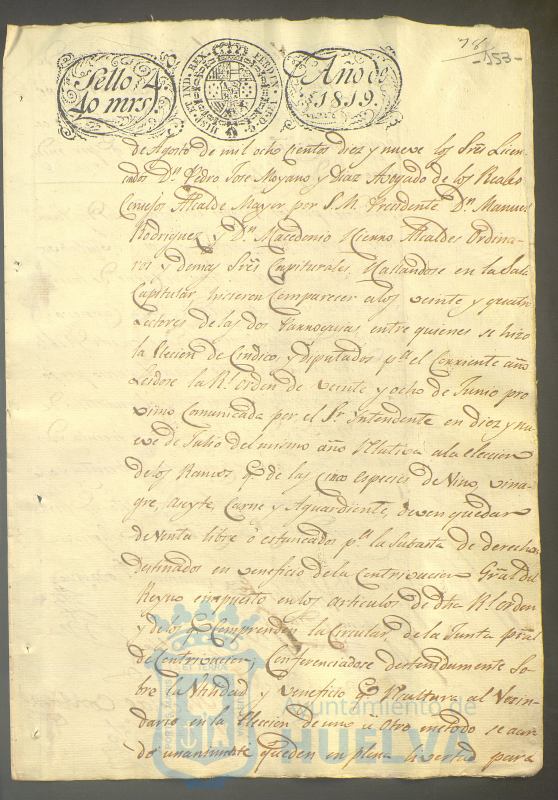 78
-153-
Sello 4
40 mrs
HISP. ET IND. REX FERDIN. VII. D. G.
Año de
1819.
de Agosto de mil ocho cientos diez y nueve los Sres Licen-
ciados Dn Pedro Jose Moyano y Diaz Avogado de los Reales
Consejos Alcalde Mayor por S. M. Precidente Dn Manuel
Rodriguez y Dn Macedonio Hierro Alcaldes Ordina-
rios y demas Sres Capitulares, Hallandose en la Sala
Capitular hisieron Comparecer a los veinte y quatro
Lectores de las dos Parroquias entre quienes se hizo
la Elecion de Cindico, y Diputados pa el Corriente año
Leidose la Rl orden de veinte y ocho de Junio pro
ximo Comunicada por el Sr Intendente en diez y nue
ve de Julio del mismo año Relativa a la eleccion
de los Ramos q de las Cinco especies de Vino, vina-
gre, aseyte, Carne y Aguardiente, deven quedar
de Venta libre o estancados pa la Subasta de derechos
destinados en veneficio de la Contrivucion Gral del
Reyno empuesto en los articulos de dha Rl orden
y de los q Comprenden la Circular, de la Junta pral
de Contrivucion, Conferenciadose detendumente So-
bre la Utilidad y veneficio q Resultara al Vecin-
dario en la Eleccion de uno u otro metodo se acor-
do unanimte queden en plena livertad para
Ayuntamiento de
HUELVA